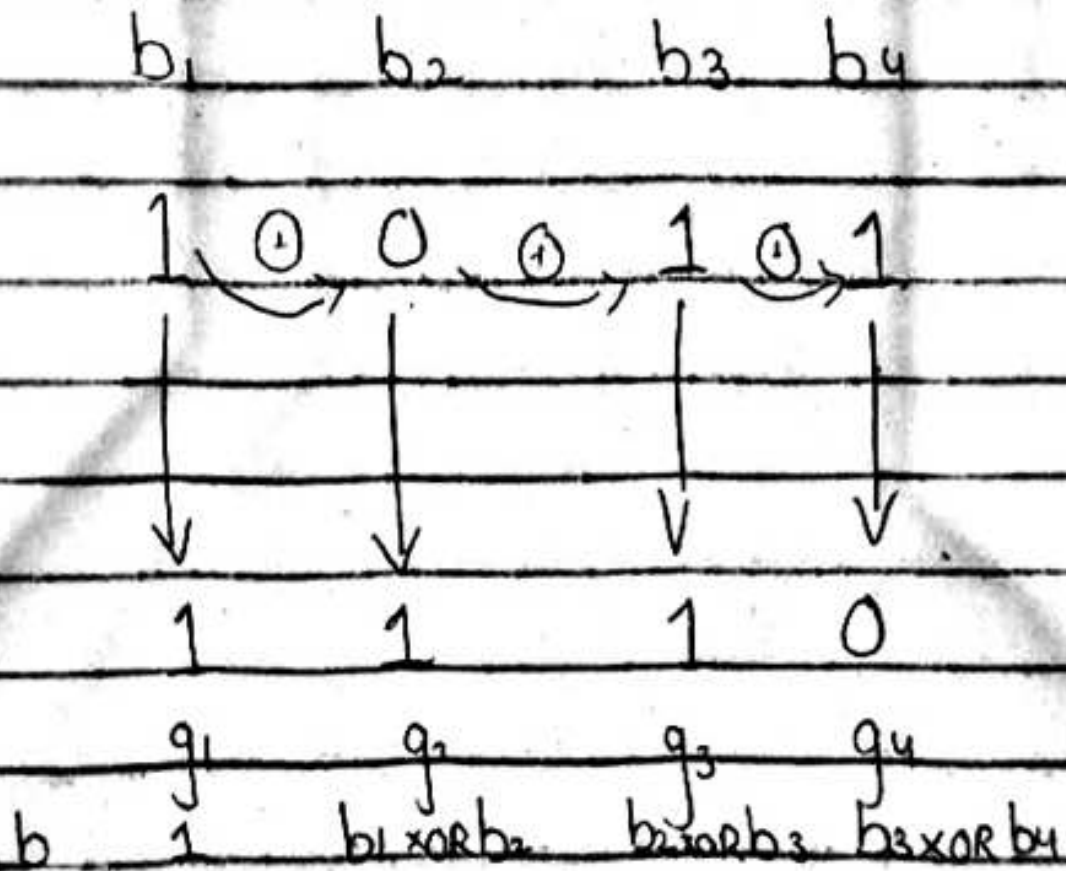 b1 b2 b3 b4
1 ⊕ 0 ⊕ 1 ⊕ 1
1 1 1 0
g1 g2 g3 g4
b 1 b1 XOR b2 b2 XOR b3 b3 XOR b4